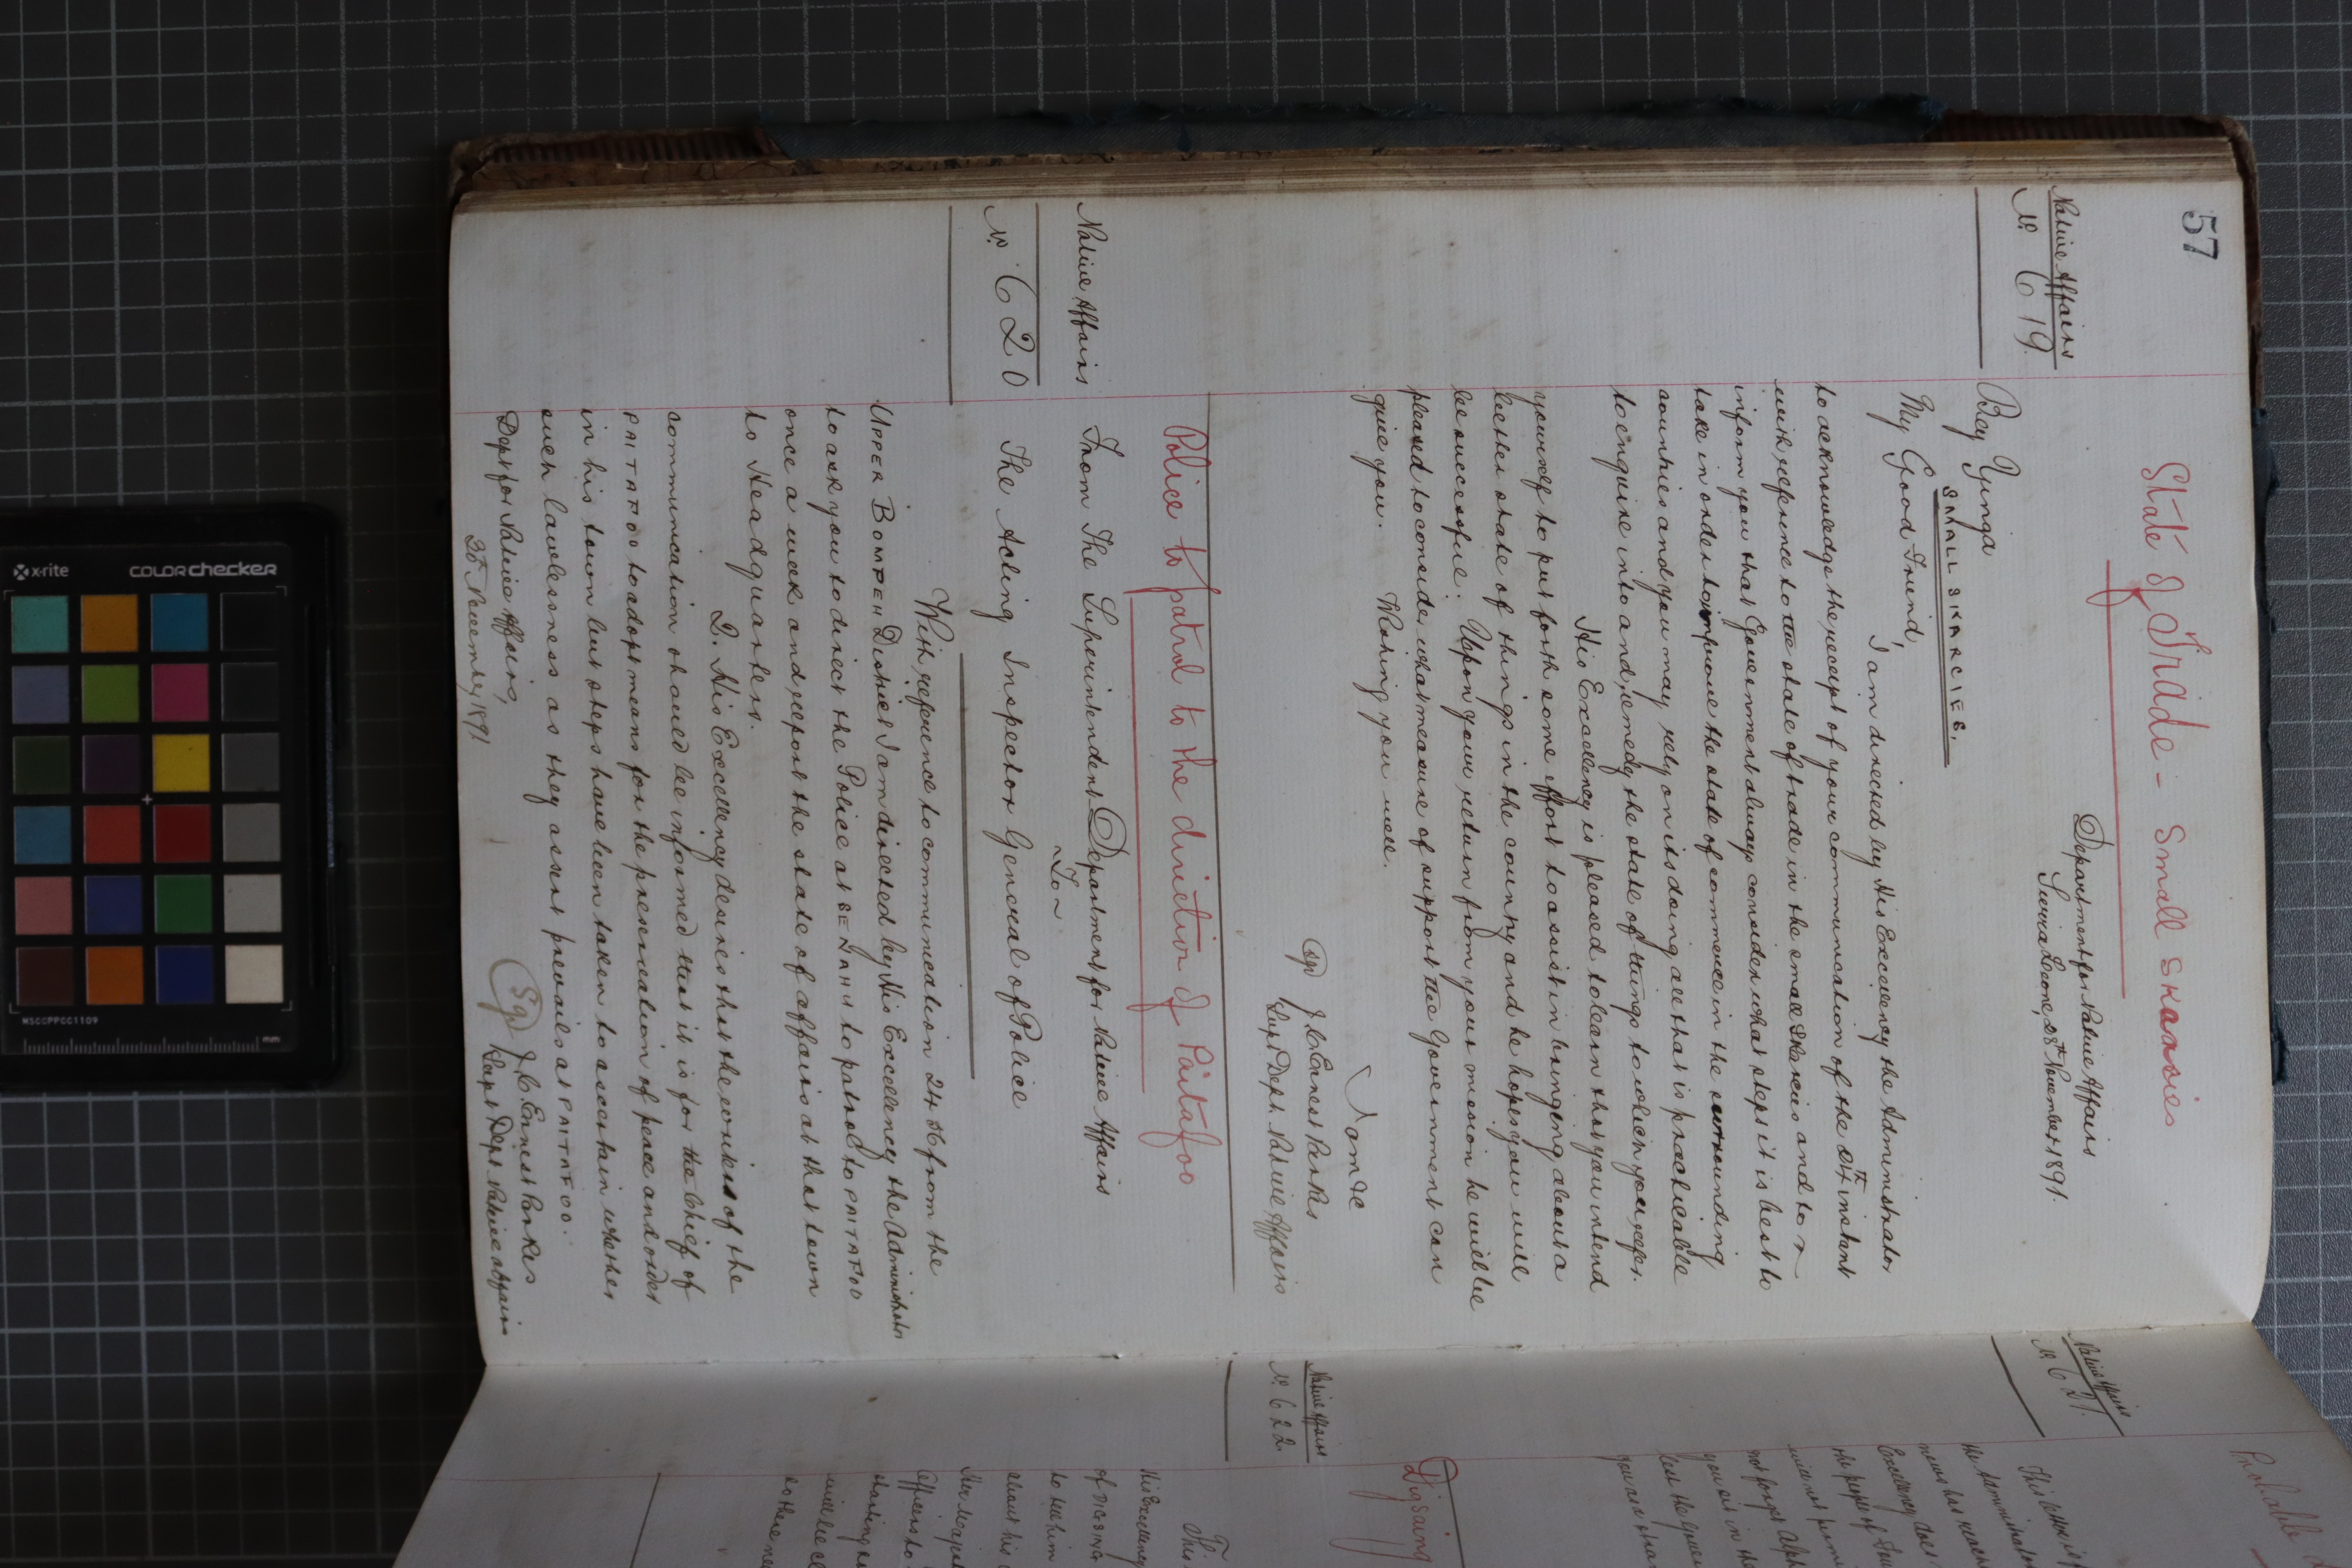 57
State of Trade - Small Skarcies
Department for Native Affairs
Sierra Leone, 28th November 1891.
Native Affairs
No. 619.
Bey Yinga
SMALL SKARCIES.
My Good Friend,
I am directed by His Excellency the Administrator
to acknowledge the receipt of your communication of the 24th instant
with reference to the state of trade in the small Skarcies and to
inform you that Government always consider what steps it is best to
take in order to improve the state of commerce in the surrounding
countries and you may rely on its doing all that is practicable
to enquire into and remedy the state of things to which you refer.
His Excellency is pleased to learn that you intend
yourself to put forth some effort to assist in bringing about a
better state of things in the country and he hopes you will
be successful. Upon your return from your mission he will be
pleased to consider what measure of support the Government can
give you. Wishing you well.
I am &c
(Sgd) J. C. Ernest Parkes
Supt. Dept. Native Affairs
Police to patrol to the direction of Paitafoo
Native Affairs
No. 620
From The Superintendent Department for Native Affairs
~ To ~
The Acting Inspector General of Police
With reference to communication 24 56 from the
UPPER BOMPEH District I am directed by His Excellency the Administrator
to ask you to direct the Police at SENAHU to patrol to PAITAFOO
once a week and report the state of affairs at that town
to Headquarters.
2. His Excellency desires that the writer of the
communication should be informed that it is for the Chief of
PAITAFOO to adopt means for the preservation of peace and order
in his town but steps have been taken to ascertain whether
such lawlessness as they assert prevails at PAITAFOO.
Dept for Native Affairs,
28th November, 1891
(Sgd) J. C. Ernest Parkes
Supt Dept. Native Affairs
Probable
Native Affairs
No. 621.
the Administrator
news has reached
Excellency does
the people of
will not
not forget
you sit in the
lest the
Digsaing
Native Affairs
No. 622.
This
His Excellency
of DIGSAING
to tell him
about his
Her Majesty
Officers to
starting
will be
so there
x-rite
COLOR checker
MSCCPPCC1109
mm